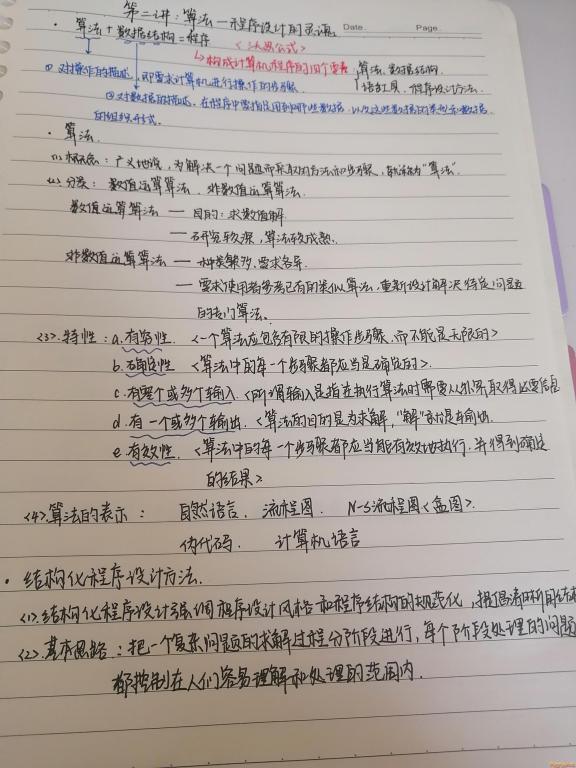 第二讲：算法—程序设计的灵魂 Date Page
· 算法 + 数据结构 = 程序 <沃思公式>
↳ 构成计算机程序的四个要素 算法、数据结构、
① 对操作的描述，即要求计算机进行操作的步骤. 语言工具、程序设计方法.
② 对数据的描述，在程序中要指定用到哪些数据，以及这些数据的类型和数据
的组织形式.
· 算法.
(1). 概念：广义地说，为解决一个问题而采取的方法和步骤，就称为"算法".
(2). 分类：数值运算算法、非数值运算算法.
数值运算算法 — 目的：求数值解
— 研究较深，算法较成熟.
非数值运算算法 — 种类繁多，要求各异.
— 需求使用者参考已有的类似算法，重新设计解决特定问题
的专门算法.
<3>. 特性：a. 有穷性. <一个算法应包含有限的操作步骤，而不能是无限的>
b. 确定性 <算法中的每一个步骤都应当是确定的>.
c. 有零个或多个输入. <所谓输入是指在执行算法时需要从外界取得必要信息
d. 有一个或多个输出. <算法的目的是为求解，"解"就是输出.
e. 有效性. <算法中的每一个步骤都应当能有效地执行. 并得到确定
的结果>
<4>. 算法的表示： 自然语言. 流程图. N-S流程图<盒图>.
伪代码. 计算机语言
· 结构化程序设计方法.
<1>. 结构化程序设计强调程序设计风格和程序结构的规范化，提倡清晰的结构
<2>. 基本思路：把一个复杂问题的求解过程分阶段进行，每个阶段处理的问题
都控制在人们容易理解和处理的范围内.